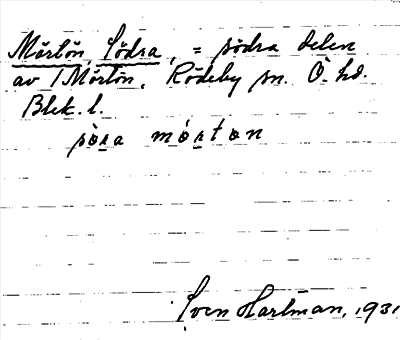 Mörtön, Södra, = södra delen
av 1 Mörtön, Rödeby sn. Ö. hd.
Blek. l.
sö̀ra mórton
Sven Hartman, 1931